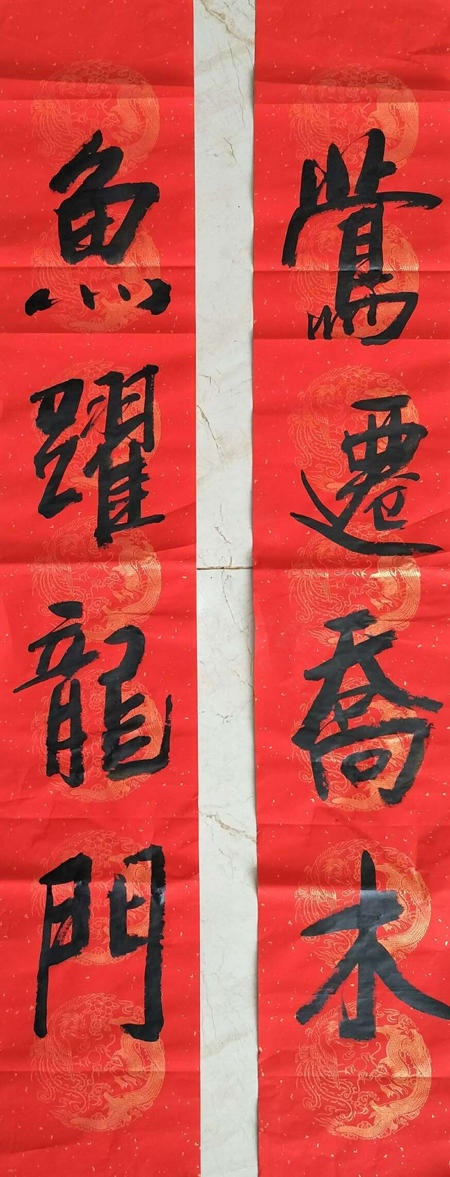 鶯遷喬木
魚躍龍門